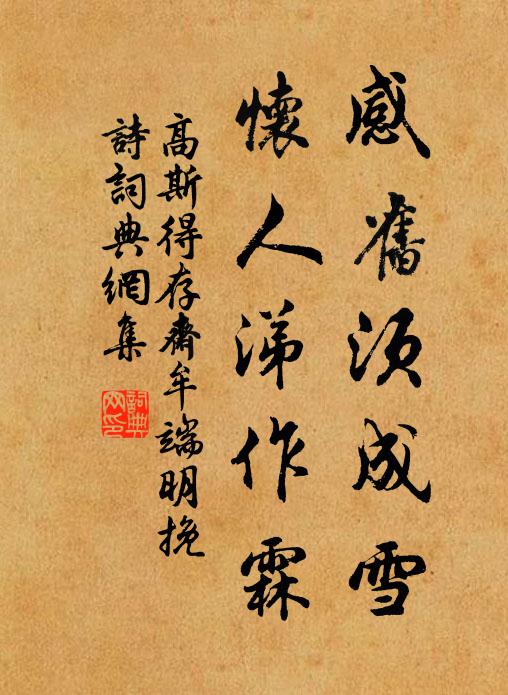 感舊須成雪
懷人涕作霖
高斯得存齋牟端明挽
詩詞典網集
詞典
网印